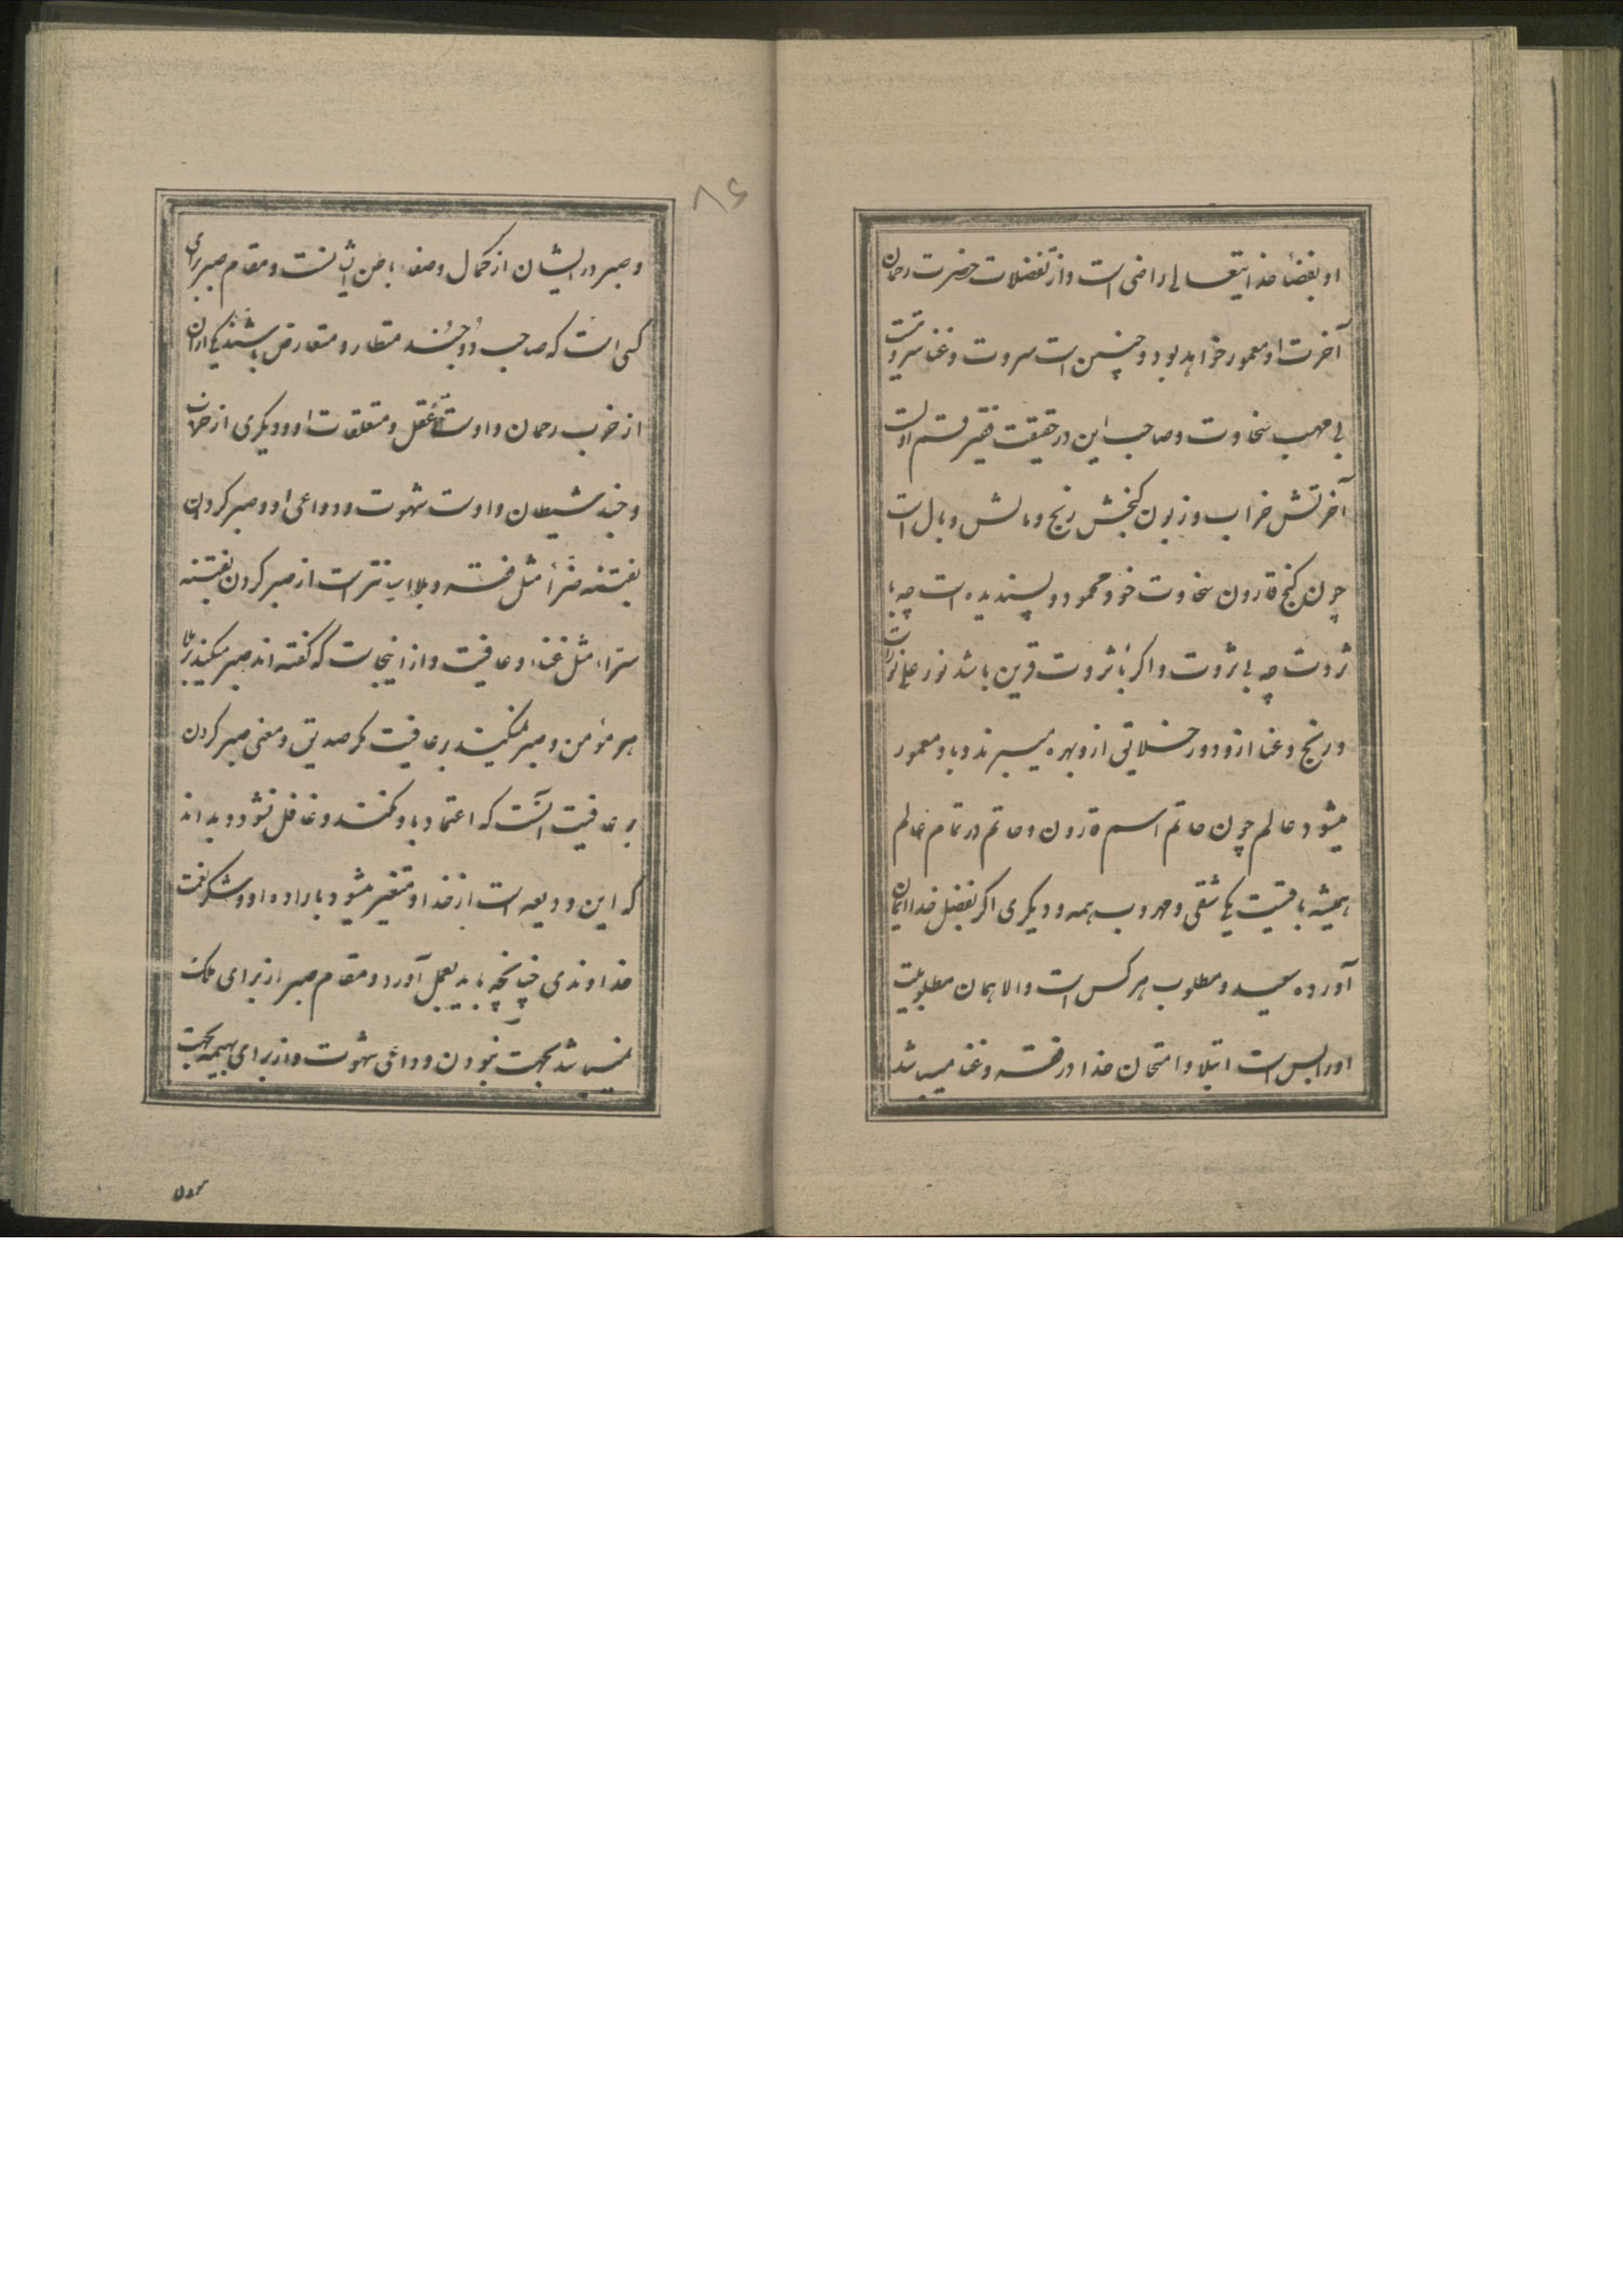 او بقضاء خدایتعالی راضی است و از تفضلات حضرت رحمان
آخرت او معمور خواهد بود و چنین است سروت و غنا
بی موهب سخاوت و صاحب این در حقیقت فقیر قسم اول است
آخرتش خراب و زبون گنجش رنج و مالش وبال است
چون گنج قارون سخاوت خود محمود و پسندیده است چه با
ثروت چه بی ثروت و اگر با ثروت قرین باشد نور علی نور است
و رنج و عنا ازو دور خلایق ازو بهره میبرند و باو معمور
میشود عالم چون حاتم اسم قارون و حاتم در تمام عالم
همیشه باقیست یکی شقی و مهروب همه و دیگری اگر بفضل خدا ایمان
آورده سعید و مطلوب هرکس است و الا همان مطلوبیت
اورا بس است ابتلا و امتحان خدا در فقر و غنا میباشد
۸۶
و صبر در ایشان از کمال وصفا باطن ایشانست و مقام صبر برای
کسی است که صاحب دو جند متطارد و متعارض باشند یکی از آن
از حزب رحمان و اوست عقل و متعلقات او و دیگری از
و جند شیطان و اوست شهوت و دواعی او و صبر کردن
بفتنه ضراء مثل فقر و بلا است از صبر کردن بفتنه
سراء مثل غناء و عافیت و از اینجاست که گفته اند صبر میکند بر بلا
هر مؤمن و صبر نمیکند بر عافیت مگر صدیق و معنی صبر کردن
بر عافیت آنست که اعتماد باو نکند و غافل نشود و بداند
که این ودیعه است از خدا و متغیر میشود باراده او و شکر نعمت
خداوندی چنانچه باید بعمل آورد و مقام صبر از برای ملک
نمیباشد بجهت نبودن دواعی شهوت و از برای بهیمه بجهت